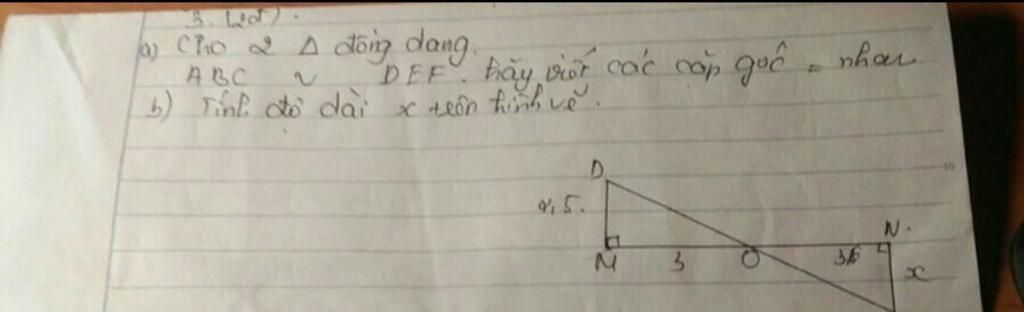 3. (2đ).
a) Cho 2 Δ đồng dạng.
ABC ~ DEF. Hãy viết các cặp góc = nhau
b) Tính độ dài x trên hình vẽ.
D
2,5.
N.
M 3 O 3,6 x